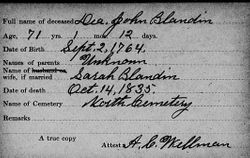 Full name of deceased Dea. John Blandin
Age, 71 yrs. 1 mos. 12 days.
Date of Birth Sept. 2, 1764.
Names of parents Unknown
Name of husband or wife, if married Sarah Blandin
Date of death Oct. 14, 1835.
Name of Cemetery North Cemetery
Remarks
A true copy
Attest: A. C. Wellman